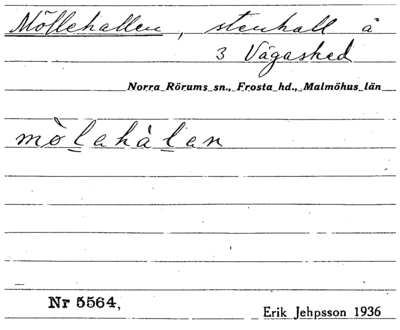 Möllehallen, stenhall å
3 Vägasked
Norra Rörums sn., Frosta hd., Malmöhus län
mòlahàlan
Nr 5564,
Erik Jehpsson 1936